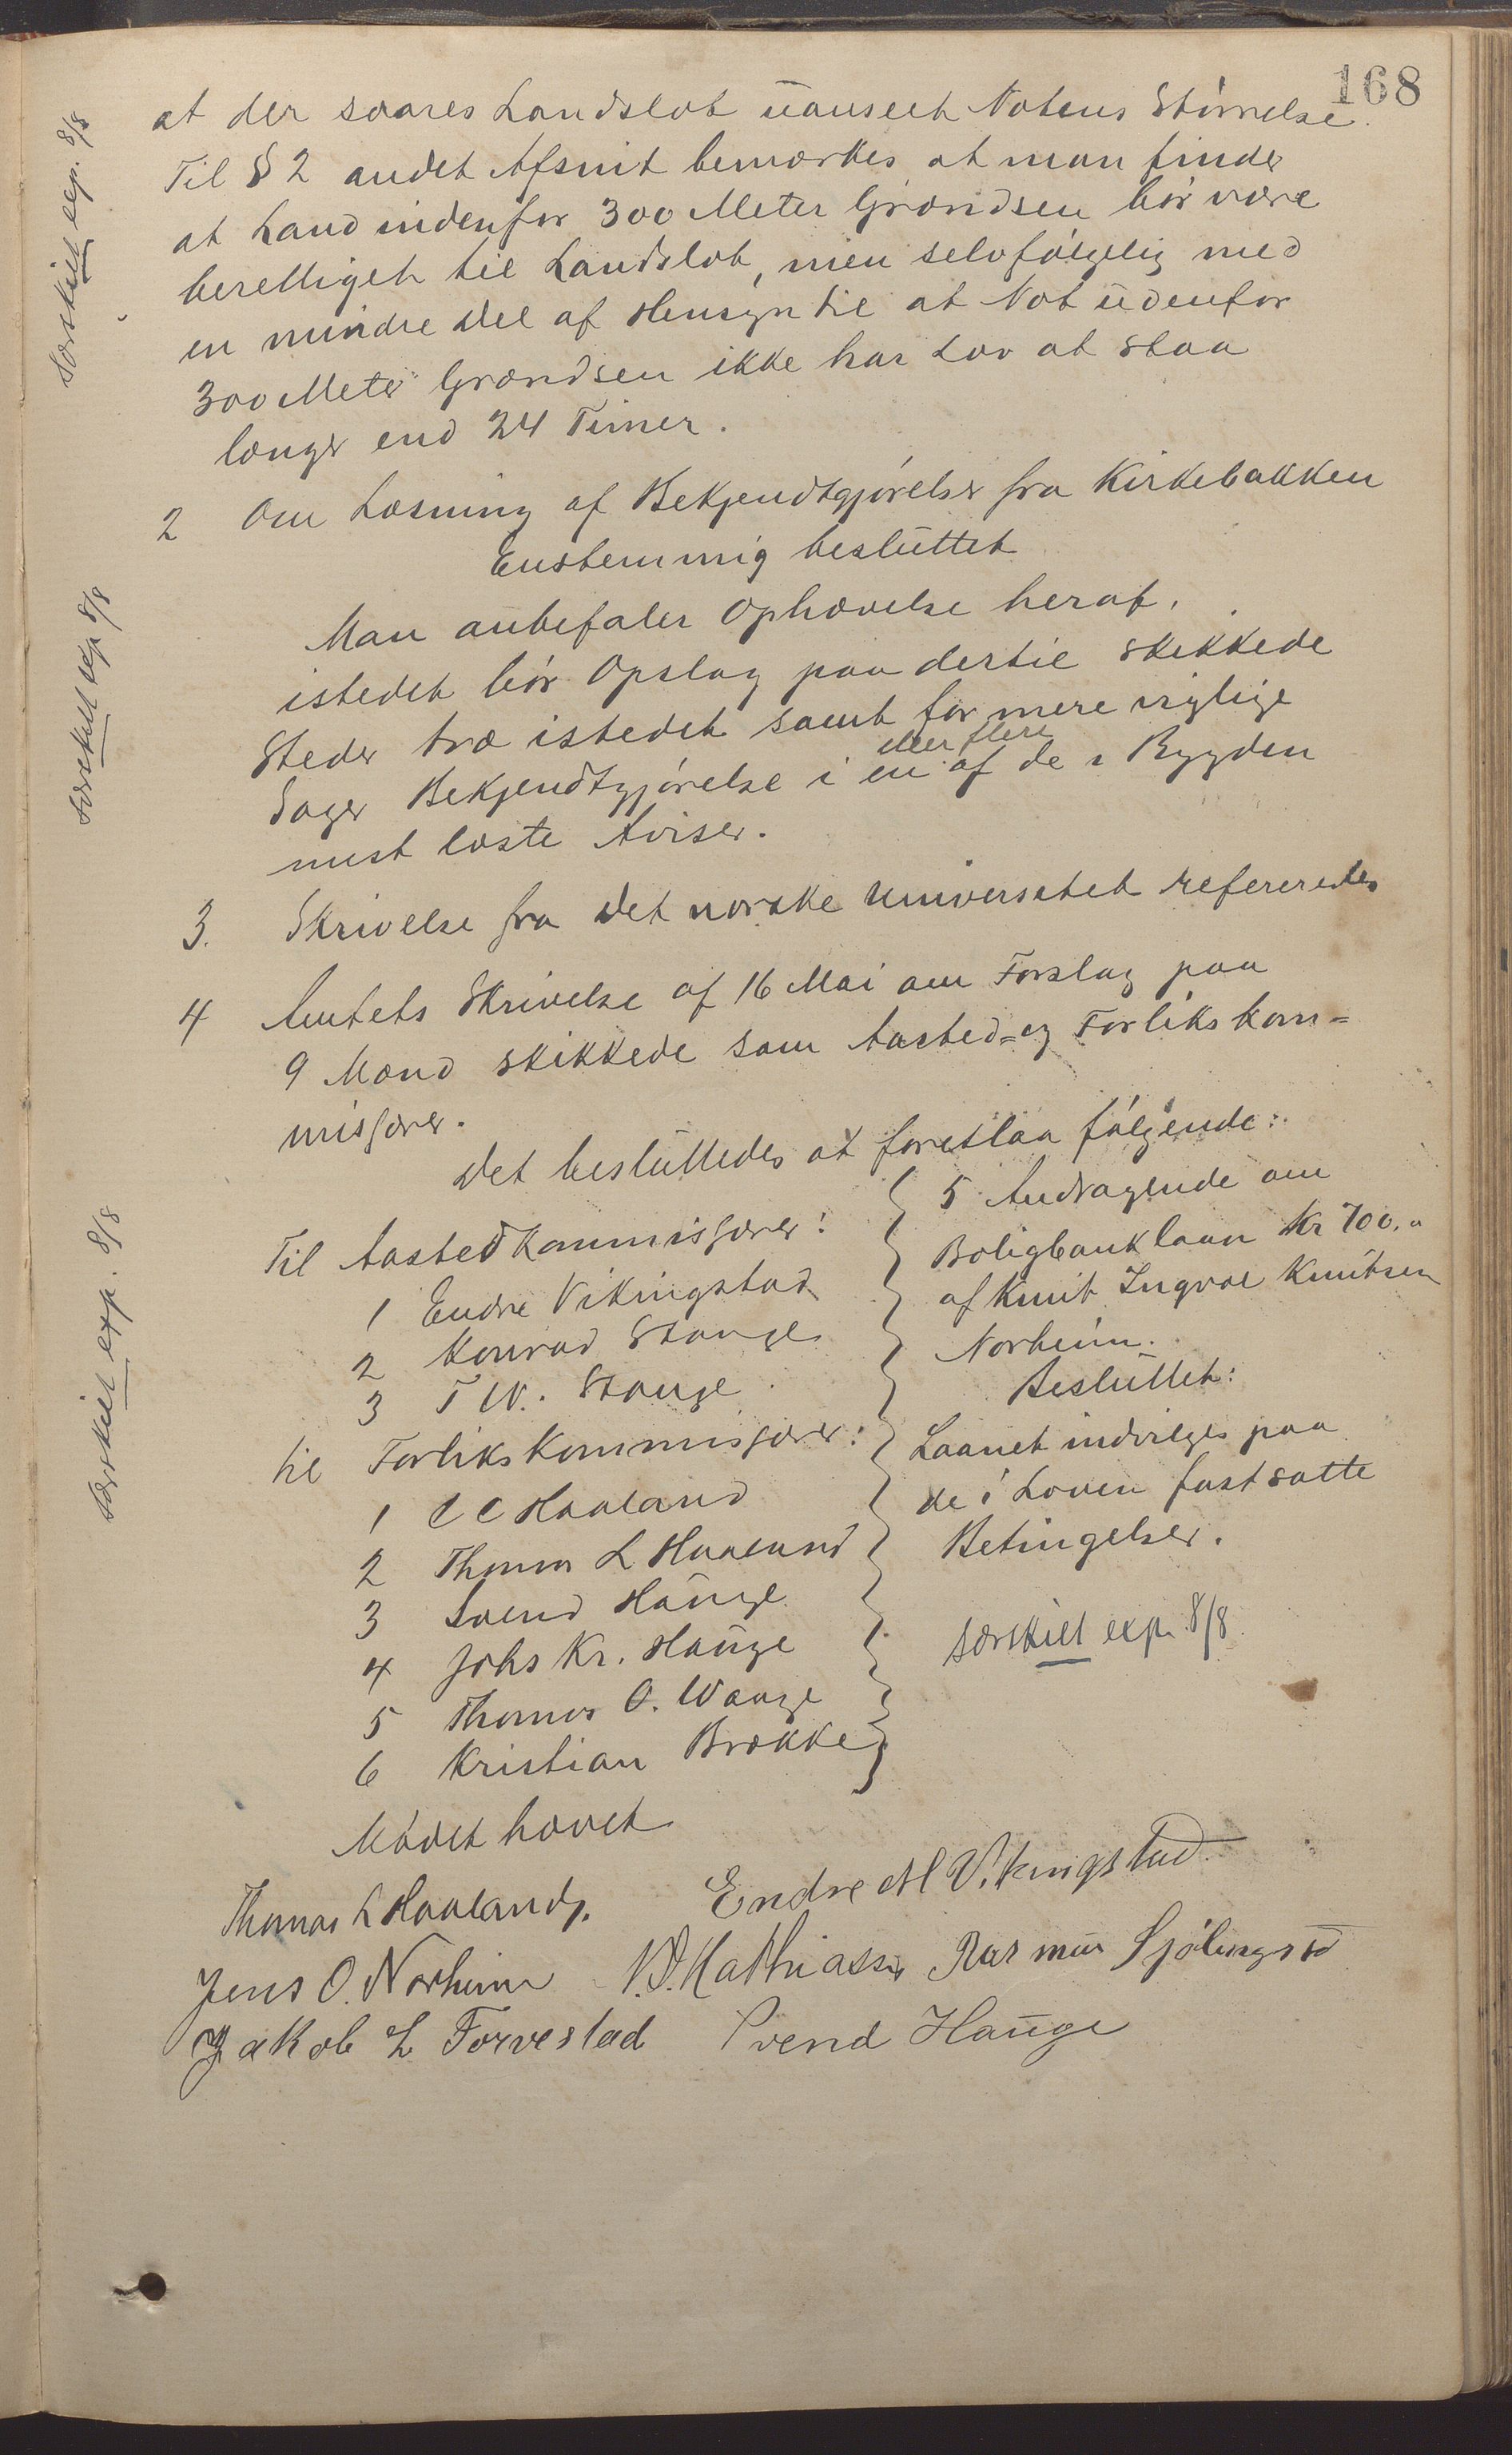 168
at der svares Landslot uanseet Notens Størrelse.
Til § 2 andet Afsnit bemærkes at man finder
at Land indenfor 300 Meter Grændsen bør være
berettiget til Landslot, men selvfølgelig med
en mindre Del af Hensyn til at Not udenfor
300 Meter Grændsen ikke har Lov at staa
længer end 24 Timer.
særskilt exp. 8/8
2 Om Læsning af Bekjendtgjørelser fra Kirkebakken
Enstemmig besluttet
Man anbefaler Ophævelse heraf,
istedet bør Opslag paa dertil skikkede
Steder træ istedet samt for mere vigtige
Sager Bekjendtgjørelse i en eller flere af de i Bygden
mest læste Aviser.
særskilt exp 8/8
3. Skrivelse fra det norske Universitet refereredes
4 Amtets Skrivelse af 16 Mai om Forslag paa
9 Mænd skikkede som Aasted- og Forlikskom=
misærer.
Det besluttedes at foreslaa følgende:
særskilt exp. 8/8
Til Aastedkommisærer:
1 Endre Vikingstad
2 Konrad Stange
3 T W. Stange
til Forlikskommisærer:
1 C C Haaland
2 Thomas L Haaland
3 Svend Hauge
4 Johs Kr. Hauge
5 Thomas O. Waage
6 Kristian Brække
5 Andragende om
Boligbanklaan Kr 700,"
af Knut Ingvar Knutsen
Norheim.
Besluttet:
Laanet indvilges paa
de i Loven fastsatte
Betingelser.
særskilt exp. 8/8
Mødet hævet
Thomas L Haaland. Endre M Vikingstad
Jens O. Norheim Mathiassen Rasmus
Jakob L Torvestad Svend Hauge